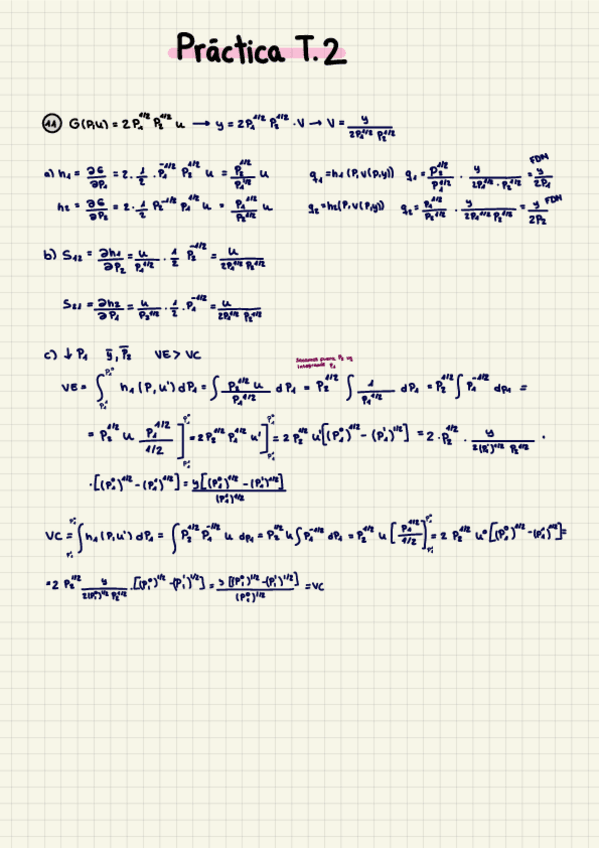 Práctica T.2
11 G(P,u) = 2P₁^1/2 P₂^1/2 u → y = 2P₁^1/2 P₂^1/2 · V → V = y / 2P₁^1/2 P₂^1/2
a) h₁ = ∂G/∂P₁ = 2 · 1/2 · P₁^-1/2 P₂^1/2 u = P₂^1/2 / P₁^1/2 u q₁ = h₁ (P, V(P,y)) q₁ = P₂^1/2 / P₁^1/2 · y / 2P₁^1/2 · P₂^1/2 = y / 2P₁ FDM
h₂ = ∂G/∂P₂ = 2 · 1/2 P₂^-1/2 P₁^1/2 u = P₁^1/2 / P₂^1/2 u q₂ = h₂ (P, V(P,y)) q₂ = P₁^1/2 / P₂^1/2 · y / 2P₁^1/2 P₂^1/2 = y / 2P₂ FDM
b) S₁₂ = ∂h₁/∂P₂ = u / P₁^1/2 · 1/2 P₂^-1/2 = u / 2P₁^1/2 P₂^1/2
S₂₁ = ∂h₂/∂P₁ = u / P₂^1/2 · 1/2 · P₁^-1/2 = u / 2P₁^1/2 P₂^1/2
c) ↓ P₁ ȳ, P̄₂ VE > VC
VE = ∫ h₁ (P, u') dP₁ = ∫ P₂^1/2 u / P₁^1/2 dP₁ = P₂^1/2 ∫ 1 / P₁^1/2 dP₁ = P₂^1/2 ∫ P₁^-1/2 dP₁ =
= P₂^1/2 u P₁^1/2 / 1/2 ] = 2P₂^1/2 P₁^1/2 u' ] = 2 P₂^1/2 u' [(P₁⁰)^1/2 - (P₁')^1/2] = 2 · P₂^1/2 · y / 2(P₁')^1/2 P₂^1/2 ·
· [(P₁⁰)^1/2 - (P₁')^1/2] = y [(P₁⁰)^1/2 - (P₁')^1/2] / (P₁')^1/2
VC = ∫ h₁ (P, u⁰) dP₁ = ∫ P₂^1/2 P₁^-1/2 u dP₁ = P₂^1/2 u ∫ P₁^-1/2 dP₁ = P₂^1/2 u [ P₁^1/2 / 1/2 ] = 2 P₂^1/2 u⁰ [(P₁⁰)^1/2 - (P₁')^1/2] =
= 2 P₂^1/2 y / 2(P₁⁰)^1/2 P₂^1/2 · [(P₁⁰)^1/2 - (P₁')^1/2] = y [(P₁⁰)^1/2 - (P₁')^1/2] / (P₁⁰)^1/2 = VC